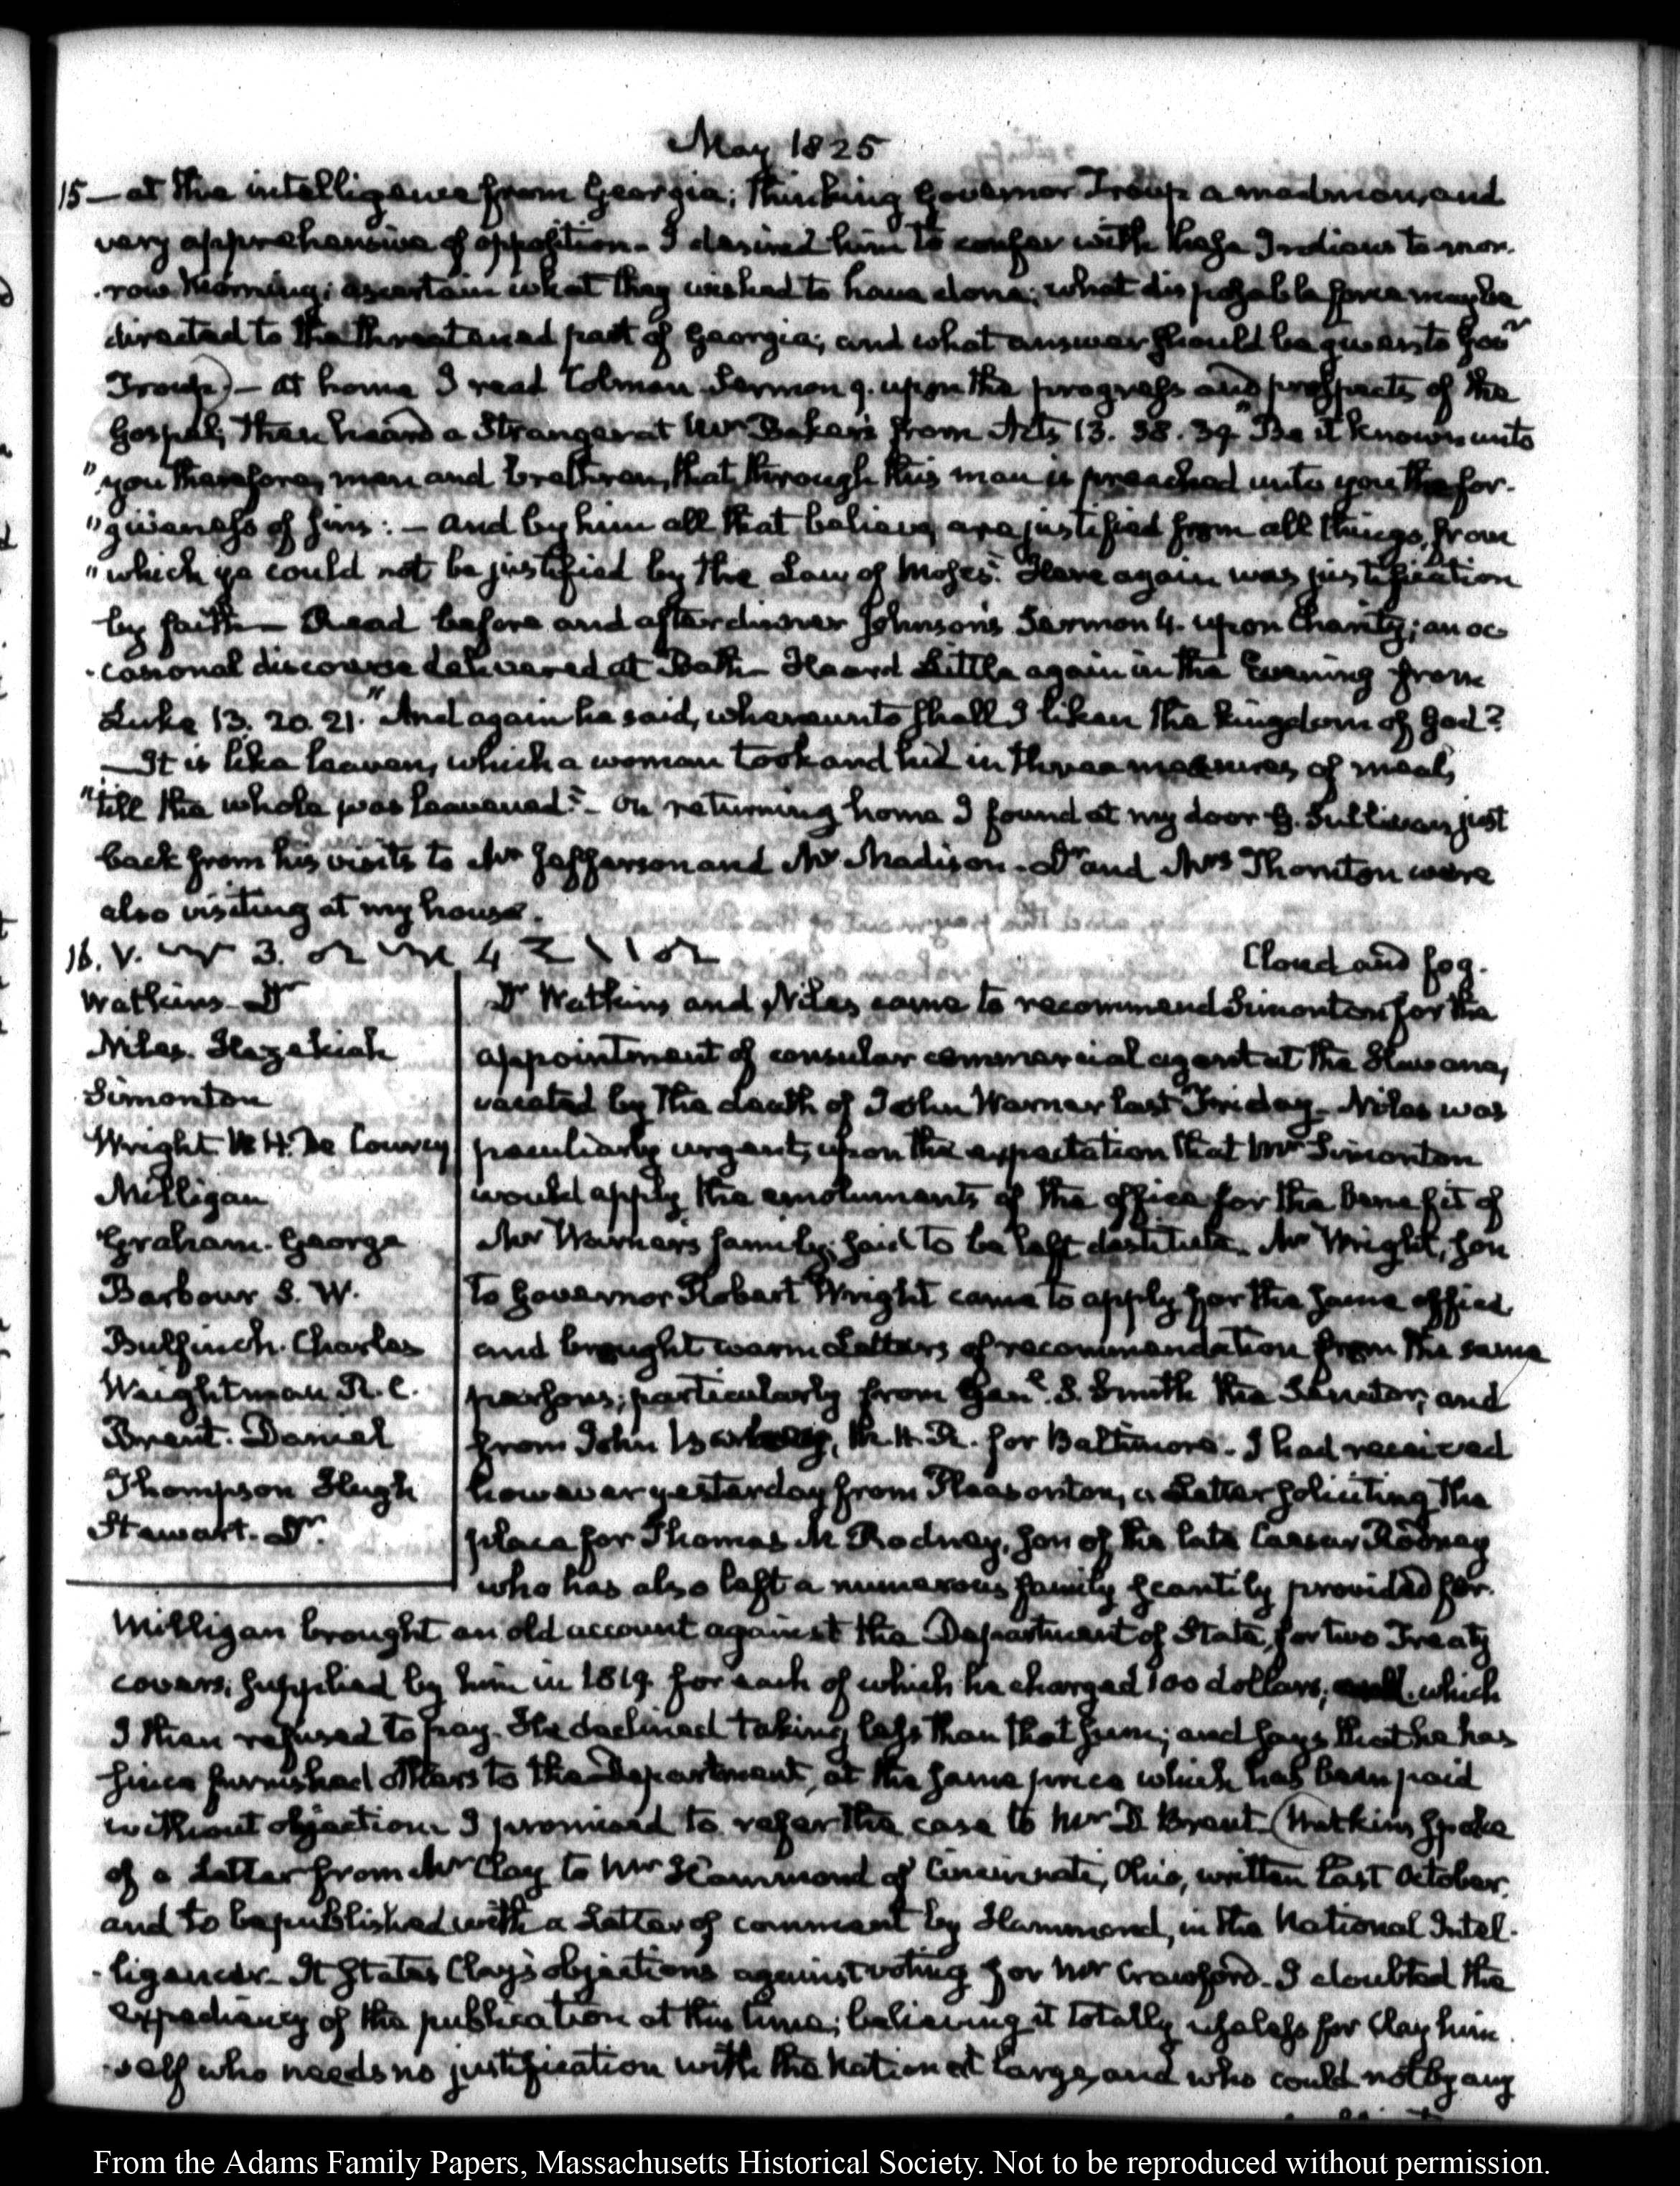 May 1825
15 — at the intelligence from Georgia; thinking Governor Troup a madman, and
very apprehensive of opposition. I desired him to confer with these Indians to mor-
row morning; ascertain what they wished to have done; what disposable force may be
directed to the threatened part of Georgia; and what answer should be given to Govr
Troup) — At home I read Colman Sermon 9. upon the progress and prospects of the
Gospel; then heard a Stranger at Mr Baker's from Acts 13. 38. 39. "Be it known unto
"you therefore, men and brethren, that through this man is preached unto you the for-
"giveness of sins: — and by him all that believe, are justified from all things, from
"which ye could not be justified by the Law of Moses." Here again was justification
by faith — Read before and after dinner Johnson's Sermon 4. upon Charity; an oc-
-casional discourse delivered at Bath — Heard Little again in the Evening from
Luke 13. 20. 21. "And again he said, whereunto shall I liken the kingdom of God?
— It is like leaven, which a woman took and hid in three measures of meal,
"till the whole was leavened." — On returning home I found at my door G. Sullivan, just
back from his visits to Mr Jefferson and Mr Madison. Dr and Mrs Thornton were
also visiting at my house.
16. V. 3. 4 Cloud and fog.
Watkins Dr
Niles. Hezekiah
Simonton
Wright W. H. De Courcy
Milligan
Graham. George
Barbour S. W.
Bulfinch. Charles
Weightman R. C.
Brent. Daniel
Thompson Hugh
Stewart. Dr.
Dr Watkins and Niles came to recommend Simonton for the
appointment of consular commercial agent at the Havana,
vacated by the death of John Warner last Friday. Niles was
peculiarly urgent, upon the expectation that Mr Simonton
would apply the emoluments of the office for the benefit of
Mr Warner's family, said to be left destitute. Mr Wright, son
to Governor Robert Wright came to apply for the same office,
and brought warm Letters of recommendation from the same
persons; particularly from Genl. S. Smith the Senator, and
from John Barney, M. H. R. for Baltimore. I had received
however yesterday from Pleasonton, a Letter soliciting the
place for Thomas M Rodney, son of the late Caesar Rodney
who has also left a numerous family scantily provided for.
Milligan brought an old account against the Department of State, for two Treaty
covers, supplied by him in 1819. for each of which he charged 100 dollars; which
I then refused to pay. He declined taking less than that sum; and says that he has
since furnished others to the Department, at the same price which has been paid
without objection. I promised to refer the case to Mr D Brent — (Watkins spoke
of a Letter from Mr Clay to Mr Hammond of Cincinnati, Ohio, written last October,
and to be published with a Letter of comment by Hammond, in the National Intel-
-ligencer. It states Clay's objections against voting for Mr Crawford. I doubted the
expediency of the publication at this time; believing it totally useless for Clay him-
-self who needs no justification with the Nation at large, and who could not by any
From the Adams Family Papers, Massachusetts Historical Society. Not to be reproduced without permission.